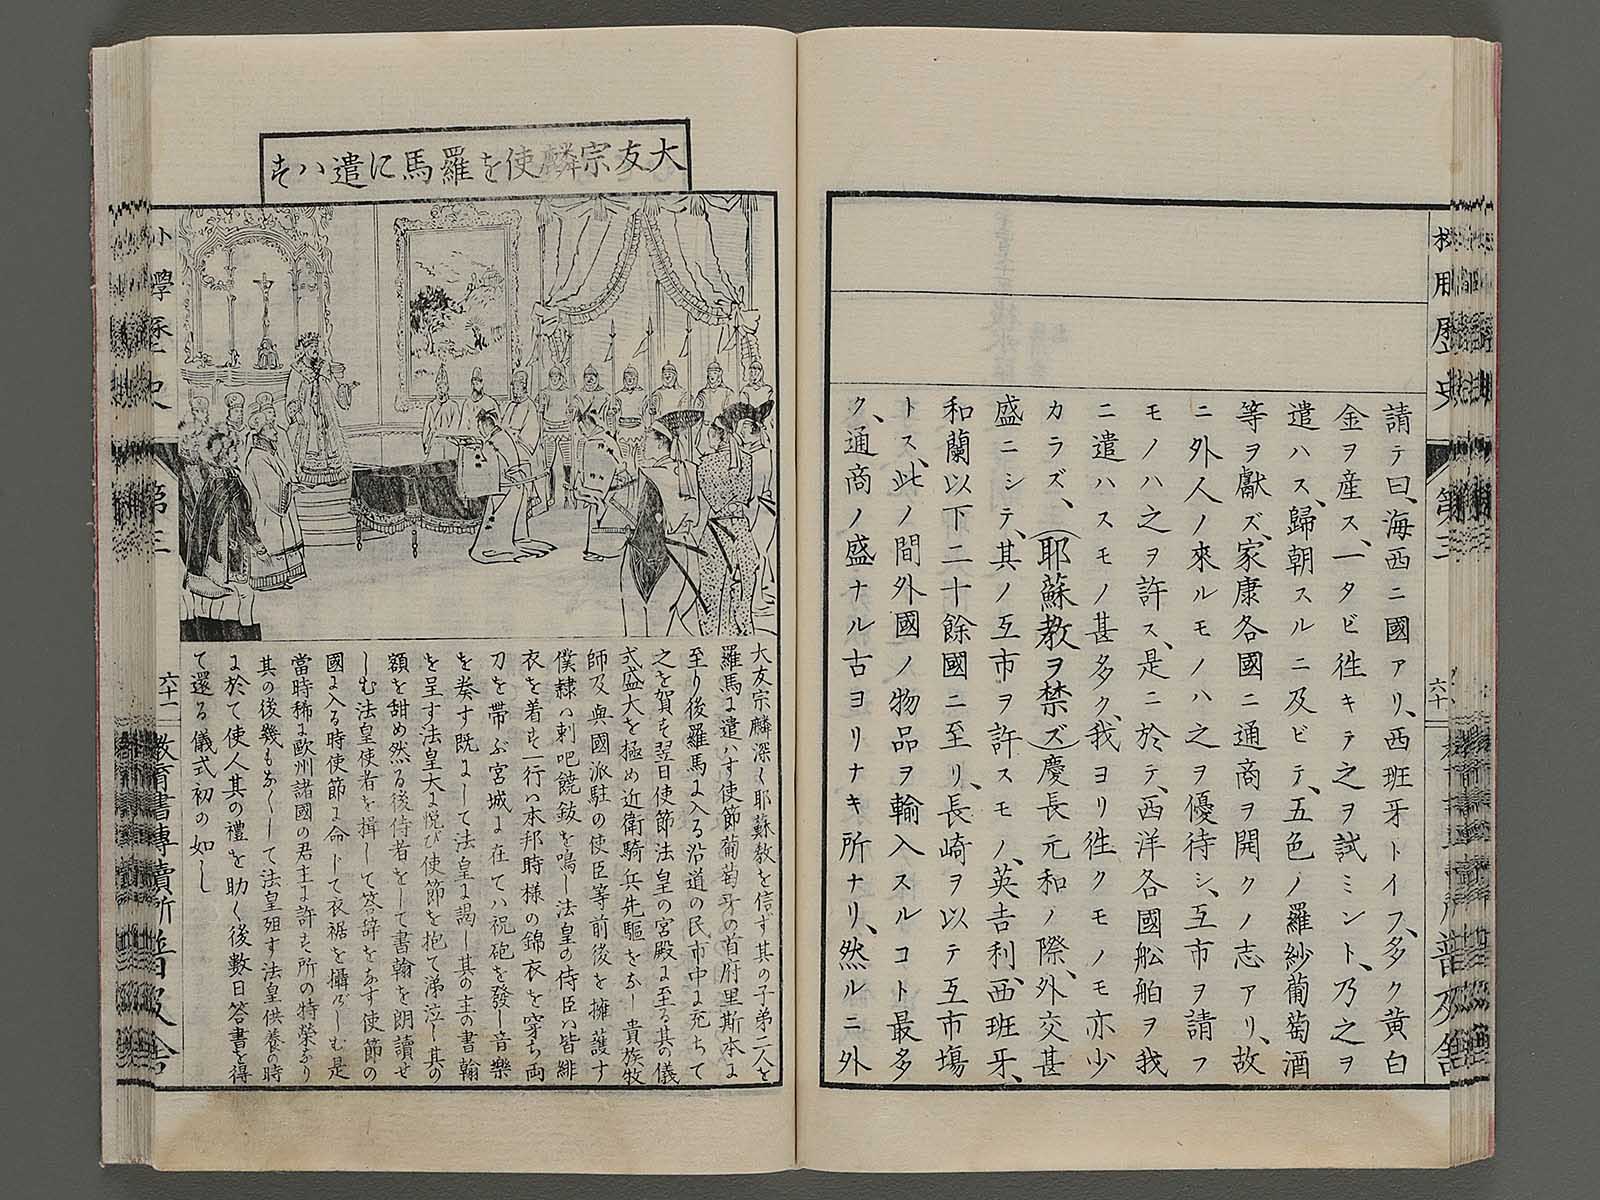 請テ曰、海西ニ國アリ、西班牙トイフ、多ク黄白
金ヲ産ス、一タビ徃キテ之ヲ試ミント、乃之ヲ
遣ハス、歸朝スルニ及ビテ、五色ノ羅紗葡萄酒
等ヲ獻ズ、家康各國ニ通商ヲ開クノ志アリ、故
ニ外人ノ來ルモノハ之ヲ優待シ、互市ヲ請フ
モノハ之ヲ許ス、是ニ於テ、西洋各國舩舶ヲ我
ニ遣ハスモノ甚多ク、我ヨリ徃クモノモ亦少
カラズ、(耶蘇教ヲ禁ズ)慶長元和ノ際、外交甚
盛ニシテ、其ノ互市ヲ許スモノ、英吉利、西班牙、
和蘭以下二十餘國ニ至リ、長崎ヲ以テ互市塲
トス、此ノ間外國ノ物品ヲ輸入スルコト最多
ク、通商ノ盛ナル古ヨリナキ所ナリ、然ルニ外
六十
大友宗麟使を羅馬に遣ハす
大友宗麟深く耶蘇教を信ず其の子弟二人を
羅馬に遣ハす使節葡萄牙の首府里斯本に
至り後羅馬に入る沿道の民市中に充ちて
之を賀す翌日使節法皇の宮殿に至る其の儀
式盛大を極め近衛騎兵先驅をなし貴族牧
師及與國派駐の使臣等前後を擁護す
僕隷ハ剌吧鐃鈸を鳴し法皇の侍臣ハ皆緋
衣を着す一行ハ本邦時様の錦衣を穿ち両
刀を帶ぶ宮城に在てハ祝砲を發し音樂
を奏す既にして法皇に謁し其の主の書翰
を呈す法皇大に悦び使節を抱て涕泣し其の
額を甜め然る後侍者をして書翰を朗讀せ
しむ法皇使者を揖して答辞をなす使節の
國に入る時使節に命じて衣裾を攝らしむ是
當時稀に歐州諸國の君主に許す所の特榮なり
其の後幾もなくして法皇殂す法皇供養の時
に於て使人其の禮を助く後數日答書を得
て還る儀式初の如し
小學歴史
第三
六十一
教育書專賣所普及舎